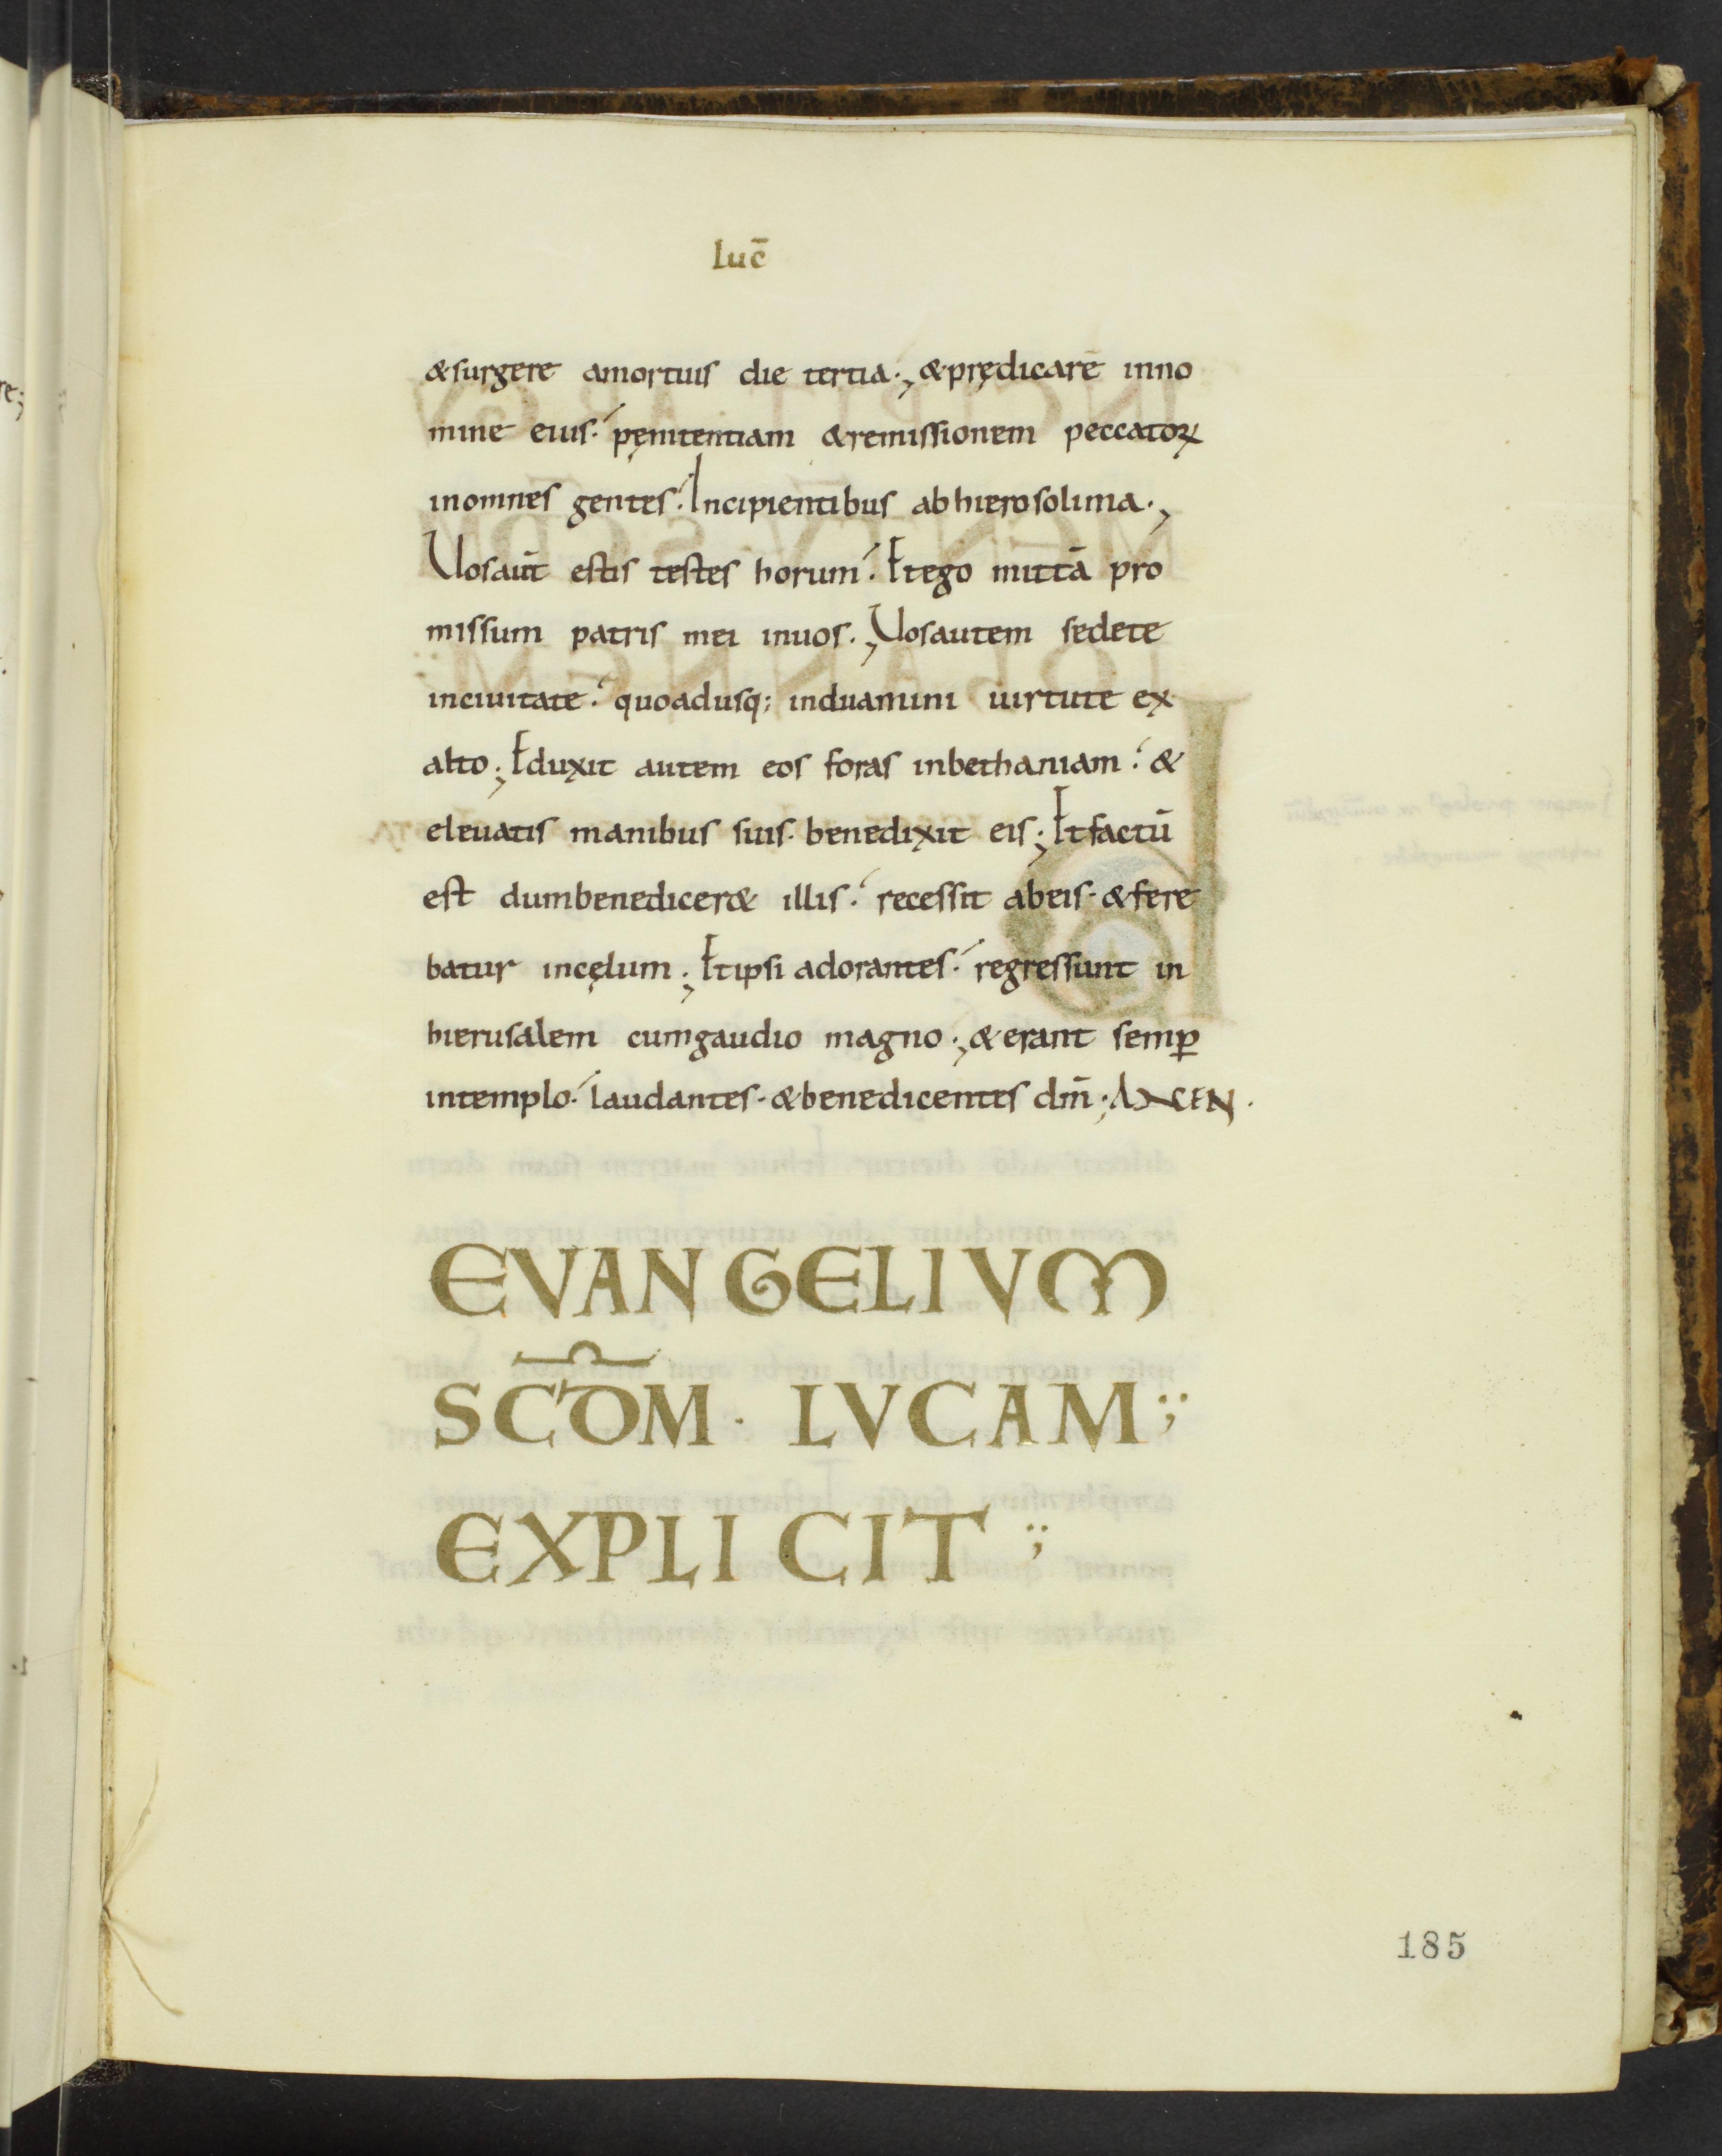 luc̄
&surgere amortuis die tertia·, &prędicarē inno
mine eius·́ pęnitentiam &remissionem peccatoꝝ
inomnes gentes·́ Incipientibus abhierosolima·,
Uosaut̄ estis testes horum·́ Etego mittā pro
missum patris mei inuos·, Uosautem sedete
inciuitate·́ quoadusq; induamini uirtute ex
alto·, Eduxit autem eos foras inbethaniam·́ &
eleuatis manibus suis· benedixit eis·, Etfactū
est dumbenedicer& illis·́ recessit abeis· &fere
batur incęlum·, Etipsi adorantes·́ regressunt in
hierusalem cumgaudio magno·, &erant semꝑ
intemplo·́ laudantes· &benedicentes dm̄·, AMEN·
EVANGELIVM
SCD̄M· LVCAM;
EXPLICIT;
185